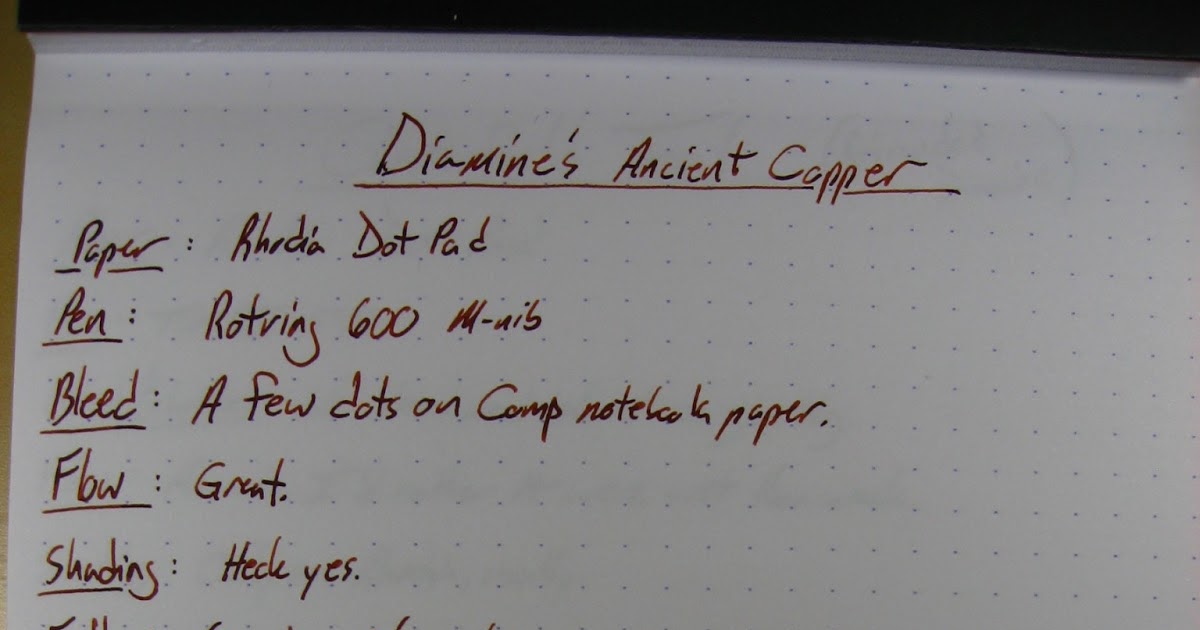 Diamine's Ancient Copper
Paper: Rhodia Dot Pad
Pen: Rotring 600 M-nib
Bleed: A few dots on Comp notebook paper.
Flow: Great.
Shading: Heck yes.